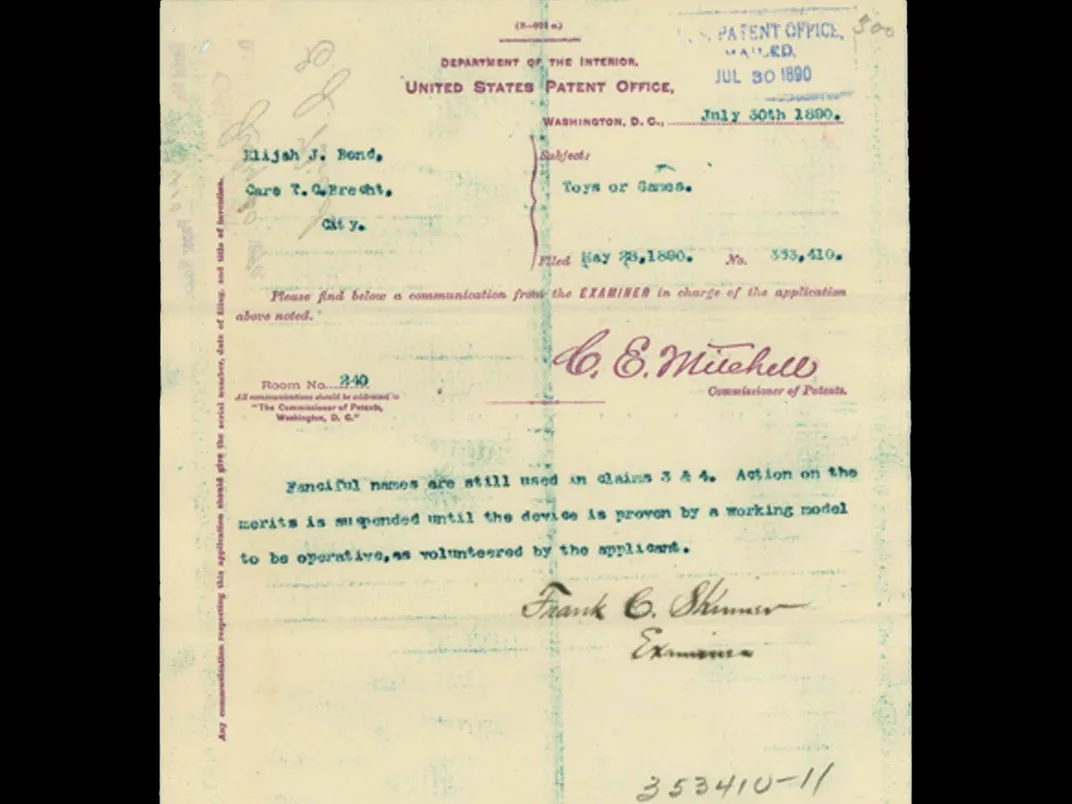 U. S. PATENT OFFICE,
MAILED,
JUL 30 1890
300
DEPARTMENT OF THE INTERIOR,
UNITED STATES PATENT OFFICE,
WASHINGTON, D. C., July 30th 1890.
Elijah J. Bond,
Care T. C. Brecht,
City.
Subject:
Toys or Games.
Filed May 28, 1890. No. 353,410.
Please find below a communication from the EXAMINER in charge of the application
above noted.
C. E. Mitchell
Commissioner of Patents.
Room No. 240
All communications should be addressed to
"The Commissioner of Patents,
Washington, D. C."
Any communication respecting this application should give the serial number, date of filing, and title of invention.
Fanciful names are still used in claims 3 & 4. Action on the
merits is suspended until the device is proven by a working model
to be operative, as volunteered by the applicant.
Frank C. Skinner
Examiner
353410-11